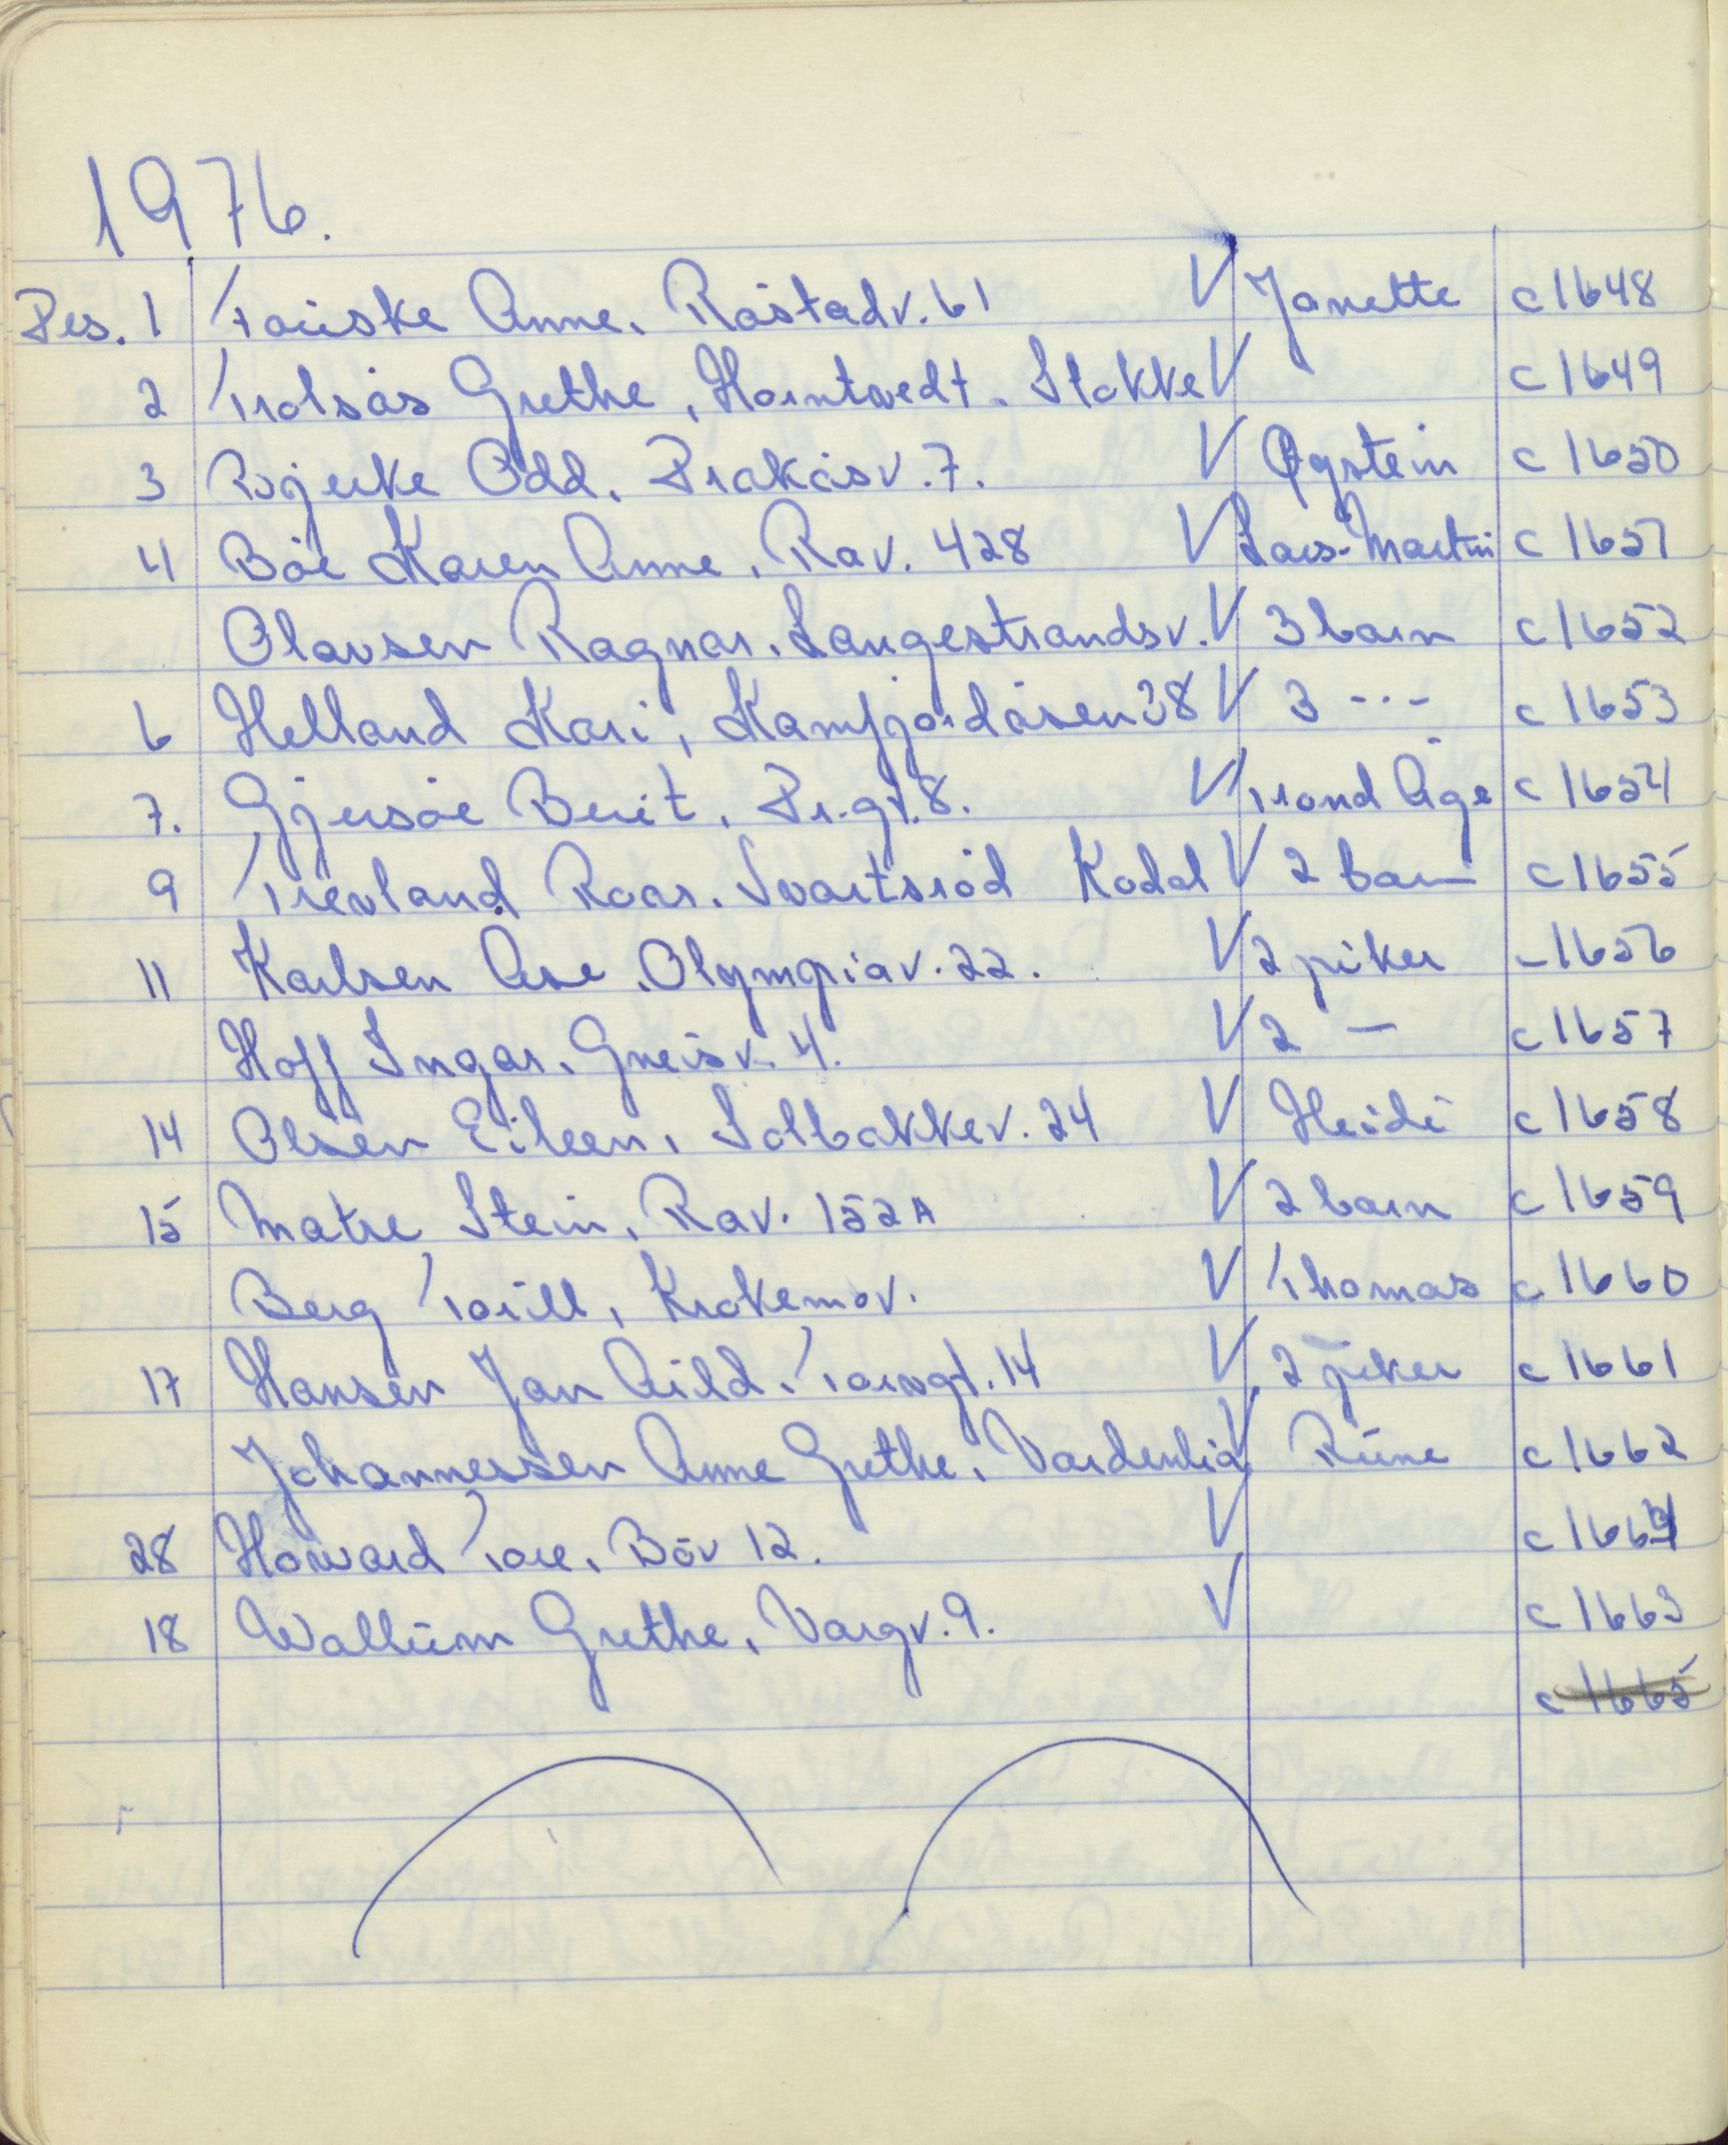 1976.
Des. 1 Fauske Anne, Råstadv. 61 V Janette c 1648
2 Trolsås Grethe, Horntvedt. Stokke V c 1649
3 Bjerke Odd, Prakåsv. 7. V Øystein c 1650
4 Bøe Karen Anne, Rav. 428 V Lars-Martin c 1651
Olavsen Ragnar, Langestrandsv. V 3 barn c 1652
6 Helland Kari, Kamfjordåsen 38 V 3 --- c 1653
7. Gjersøe Berit, Pr.gt. 8. V Trond Åge c 1654
9 Trevland Roar, Svartsrød Kodal V 2 barn c 1655
11 Karlsen Åse, Olympiav. 22. V 2 piker - 1656
Hoff Ingar, Gneisv. 4. V 2 — c 1657
14 Olsen Eileen, Solbakkev. 24 V Heidi c 1658
15 Matre Stein, Rav. 152 A V 2 barn c 1659
Berg Torill, Krokemov. V Thomas c 1660
17 Hansen Jan Arild, Torvgt. 14 V 2 piker c 1661
Johannessen Anne Grethe, Vardenlia V Rune c 1662
28 Howard Tore, Bøv 12. V c 1664
18 Wallum Grethe, Vargv. 9. V c 1663
c 1665